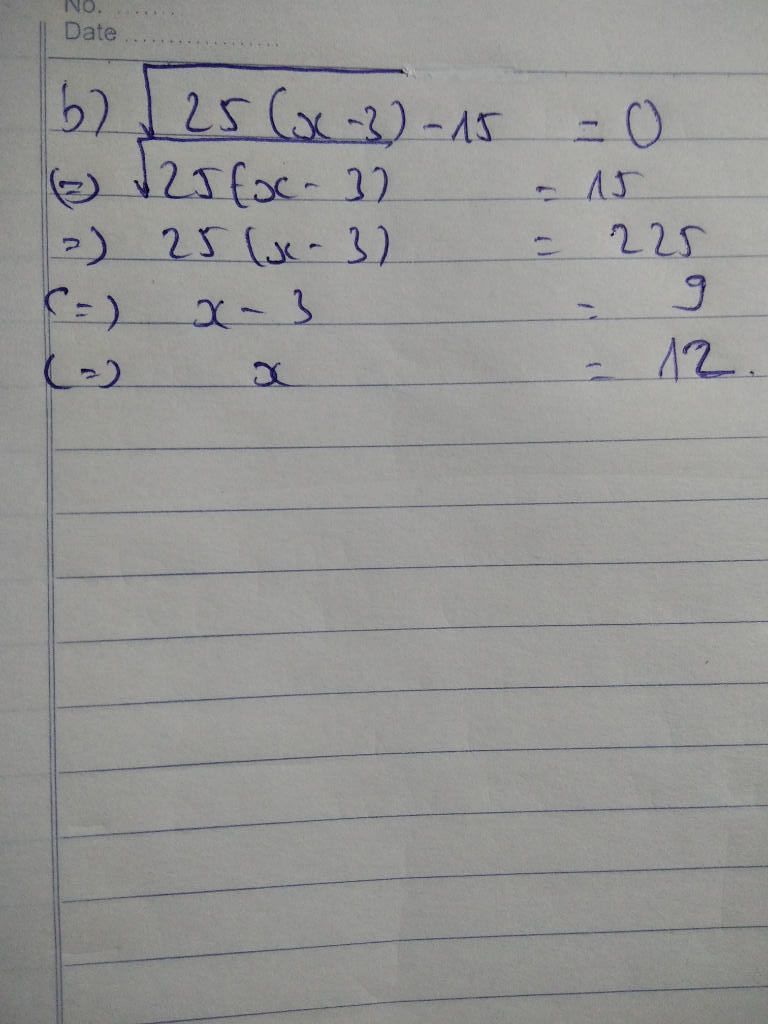 No. ........
Date ..................
b) √25(x-3) - 15 = 0
(=) √25(x - 3) = 15
=) 25(x - 3) = 225
(=) x - 3 = 9
(=) x = 12.